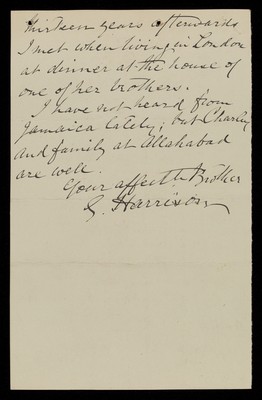 thirteen years afterwards
I met when living in London
at dinner at the house of
one of her brothers.
I have not heard from
Jamaica lately; but Charley
and family at Allahabad
are well.
Your affecte Brother
G. Harrison